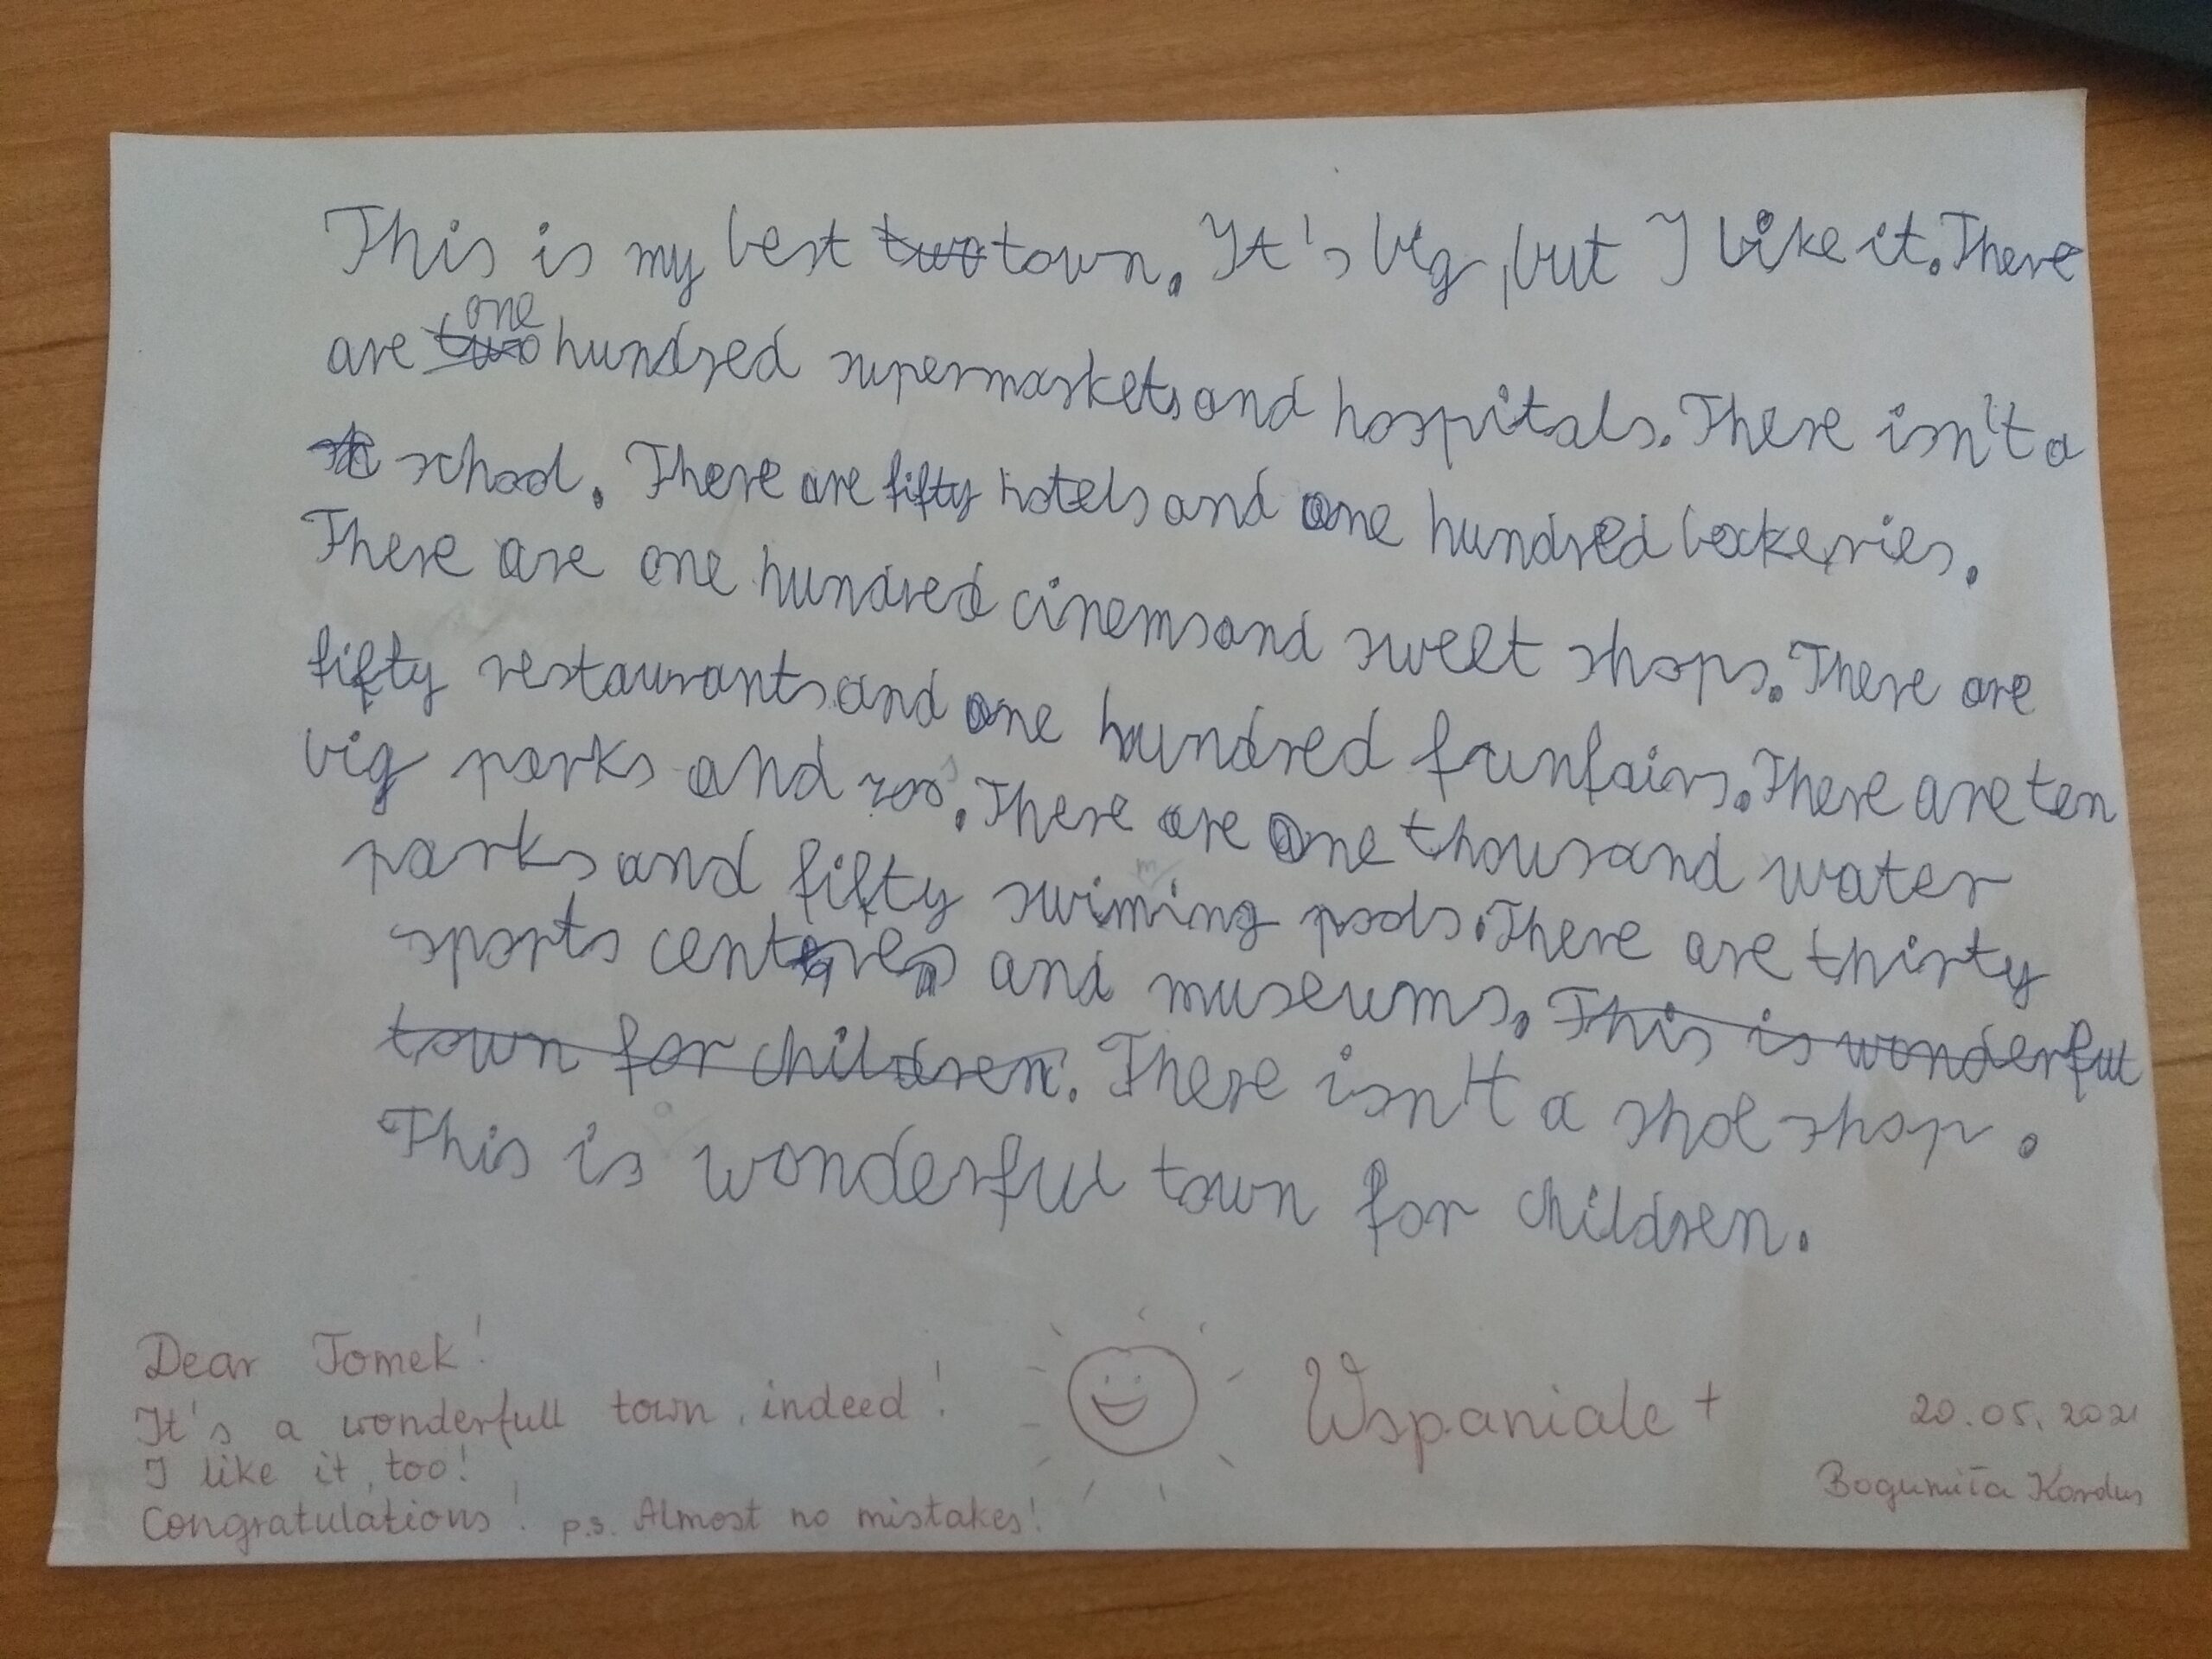 This is my best two town. It's big, but I like it. There
are two one hundred supermarkets and hospitals. There isn't a
school. There are fifty hotels and one hundred backeries.
There are one hundred cinems and sweet shops. There are
fifty restaurants and one hundred funfairs. There are ten
big parks and zoos. There are one thousand water
parks and fifty swimming pools. There are thirty
sports centres and museums. This is wonderful
town for children. There isn't a shoe shop.
This is a wonderful town for children.
Dear Tomek!
It's a wonderfull town, indeed!
I like it, too!
Congratulations! p.s. Almost no mistakes!
Wspaniale +
20.05.2021
Bogumiła Kordus